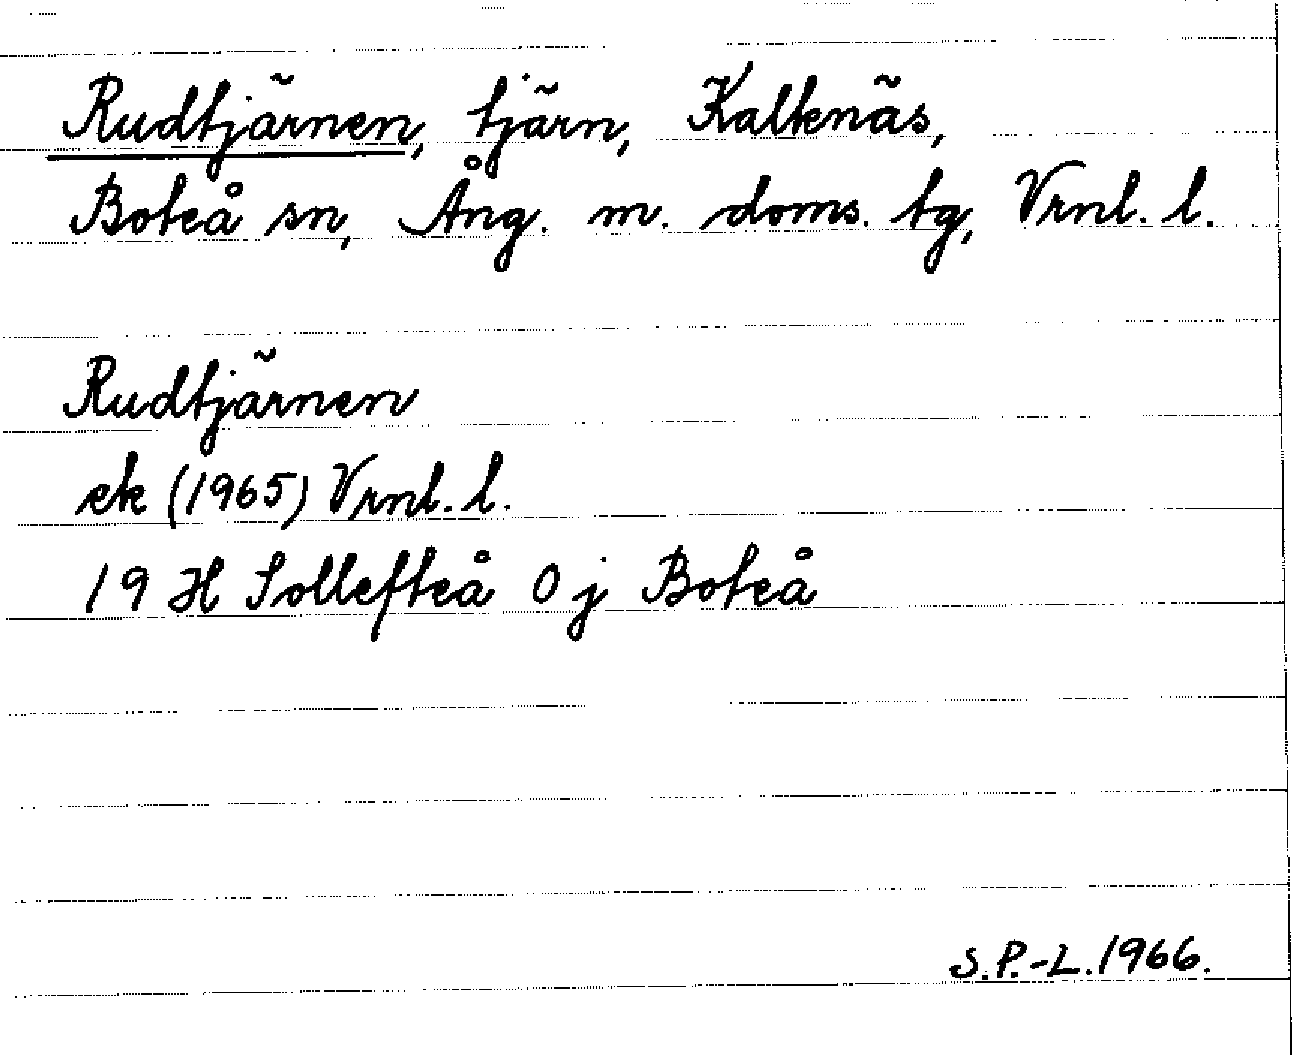 Rudtjärnen, tjärn, Kaltenäs,
Boteå sn, Ång. m. doms. tg, Vrnl. l.
Rudtjärnen
ek (1965) Vrnl. l.
19 H Sollefteå 0 j Boteå
S.P.-L. 1966.